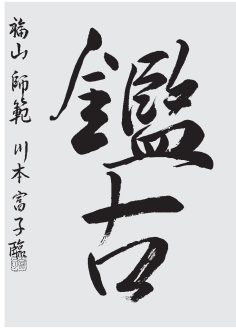 鑑古
福山 師範 川本富子臨